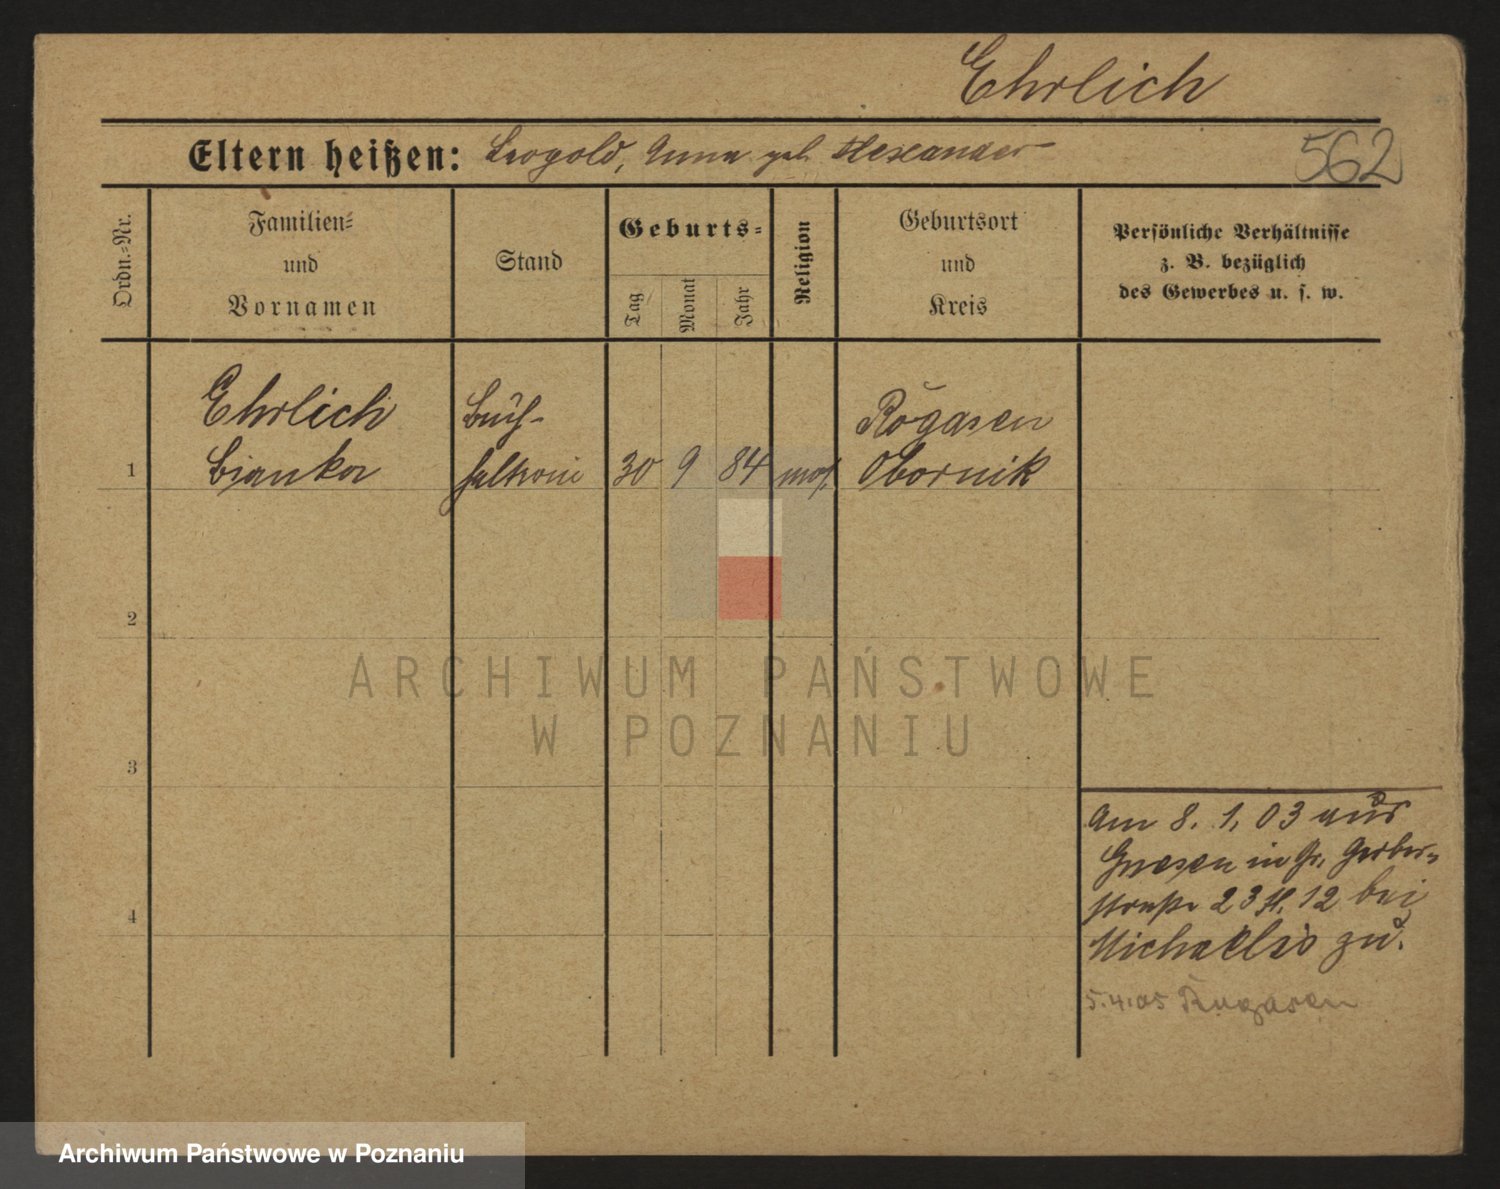 Ehrlich
Eltern heißen: Leopold, Anna geb. Alexander
562
Ordn.-Nr.
Familien-
und
Vornamen
Stand
Geburts-
Tag
Monat
Jahr
Religion
Geburtsort
und
Kreis
Persönliche Verhältnisse
z. B. bezüglich
des Gewerbes u. s. w.
Ehrlich
Buch-
Rogasen
1
Bianka
halterin
30
9
84
mos.
Obornik
2
3
4
Am 8. 1. 03 aus
Gnesen in Gr. Gerber-
straße 23 H. 12 bei
Michaelis zu.
5.4.05 Rogasen
ARCHIWUM PAŃSTWOWE
W POZNANIU
Archiwum Państwowe w Poznaniu